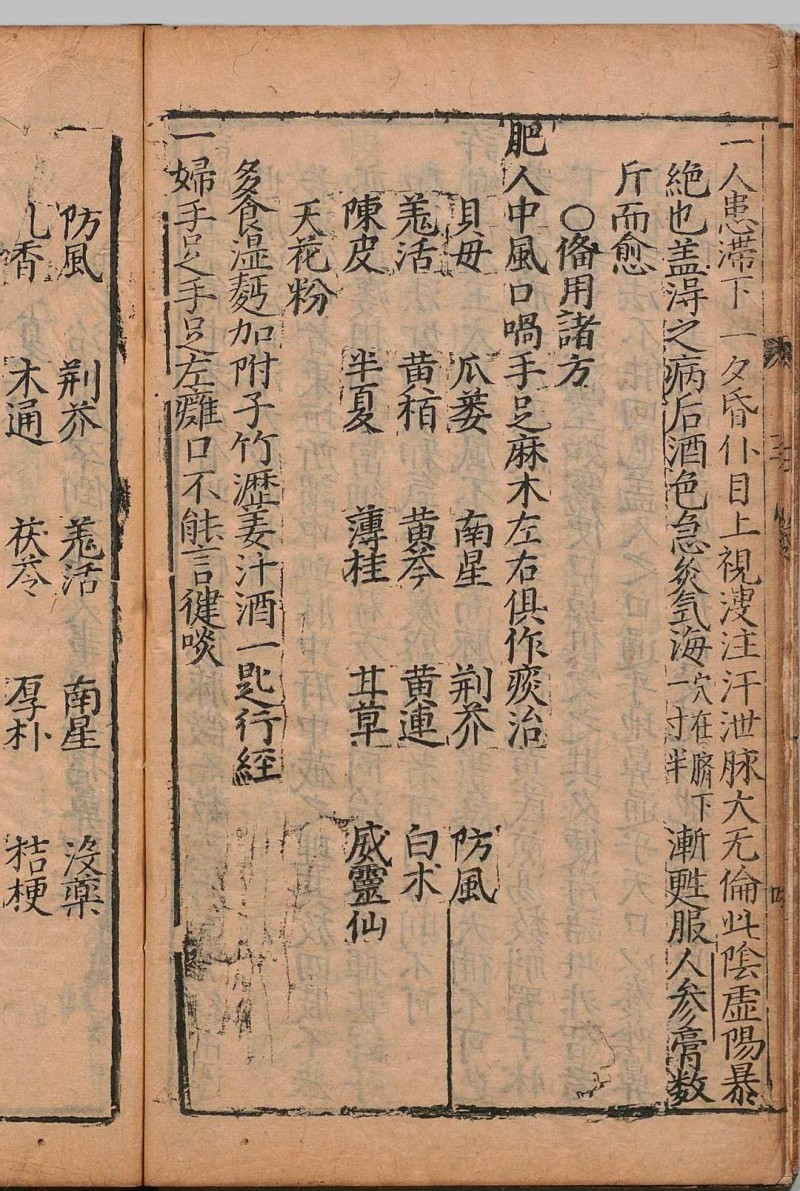 一人患滞下一夕昏仆目上視溲注汗泄脉大无倫此陰虛陽暴
絶也盖淂之病后酒色急灸氣海穴在臍下一寸半漸甦服人参膏数
斤而愈
○偹用諸方
肥人中風口喎手足麻木左右俱作痰治
貝母 瓜蒌 南星 荆芥 防風
羗活 黄栢 黄芩 黄連 白术
陳皮 半夏 薄桂 甘草 威靈仙
天花粉
多食湿麪加附子竹瀝姜汁酒一匙行經
一婦手足手足左癱口不能言徤啖
防風 荆芥 羗活 南星 没藥
乳香 木通 茯苓 厚朴 桔梗